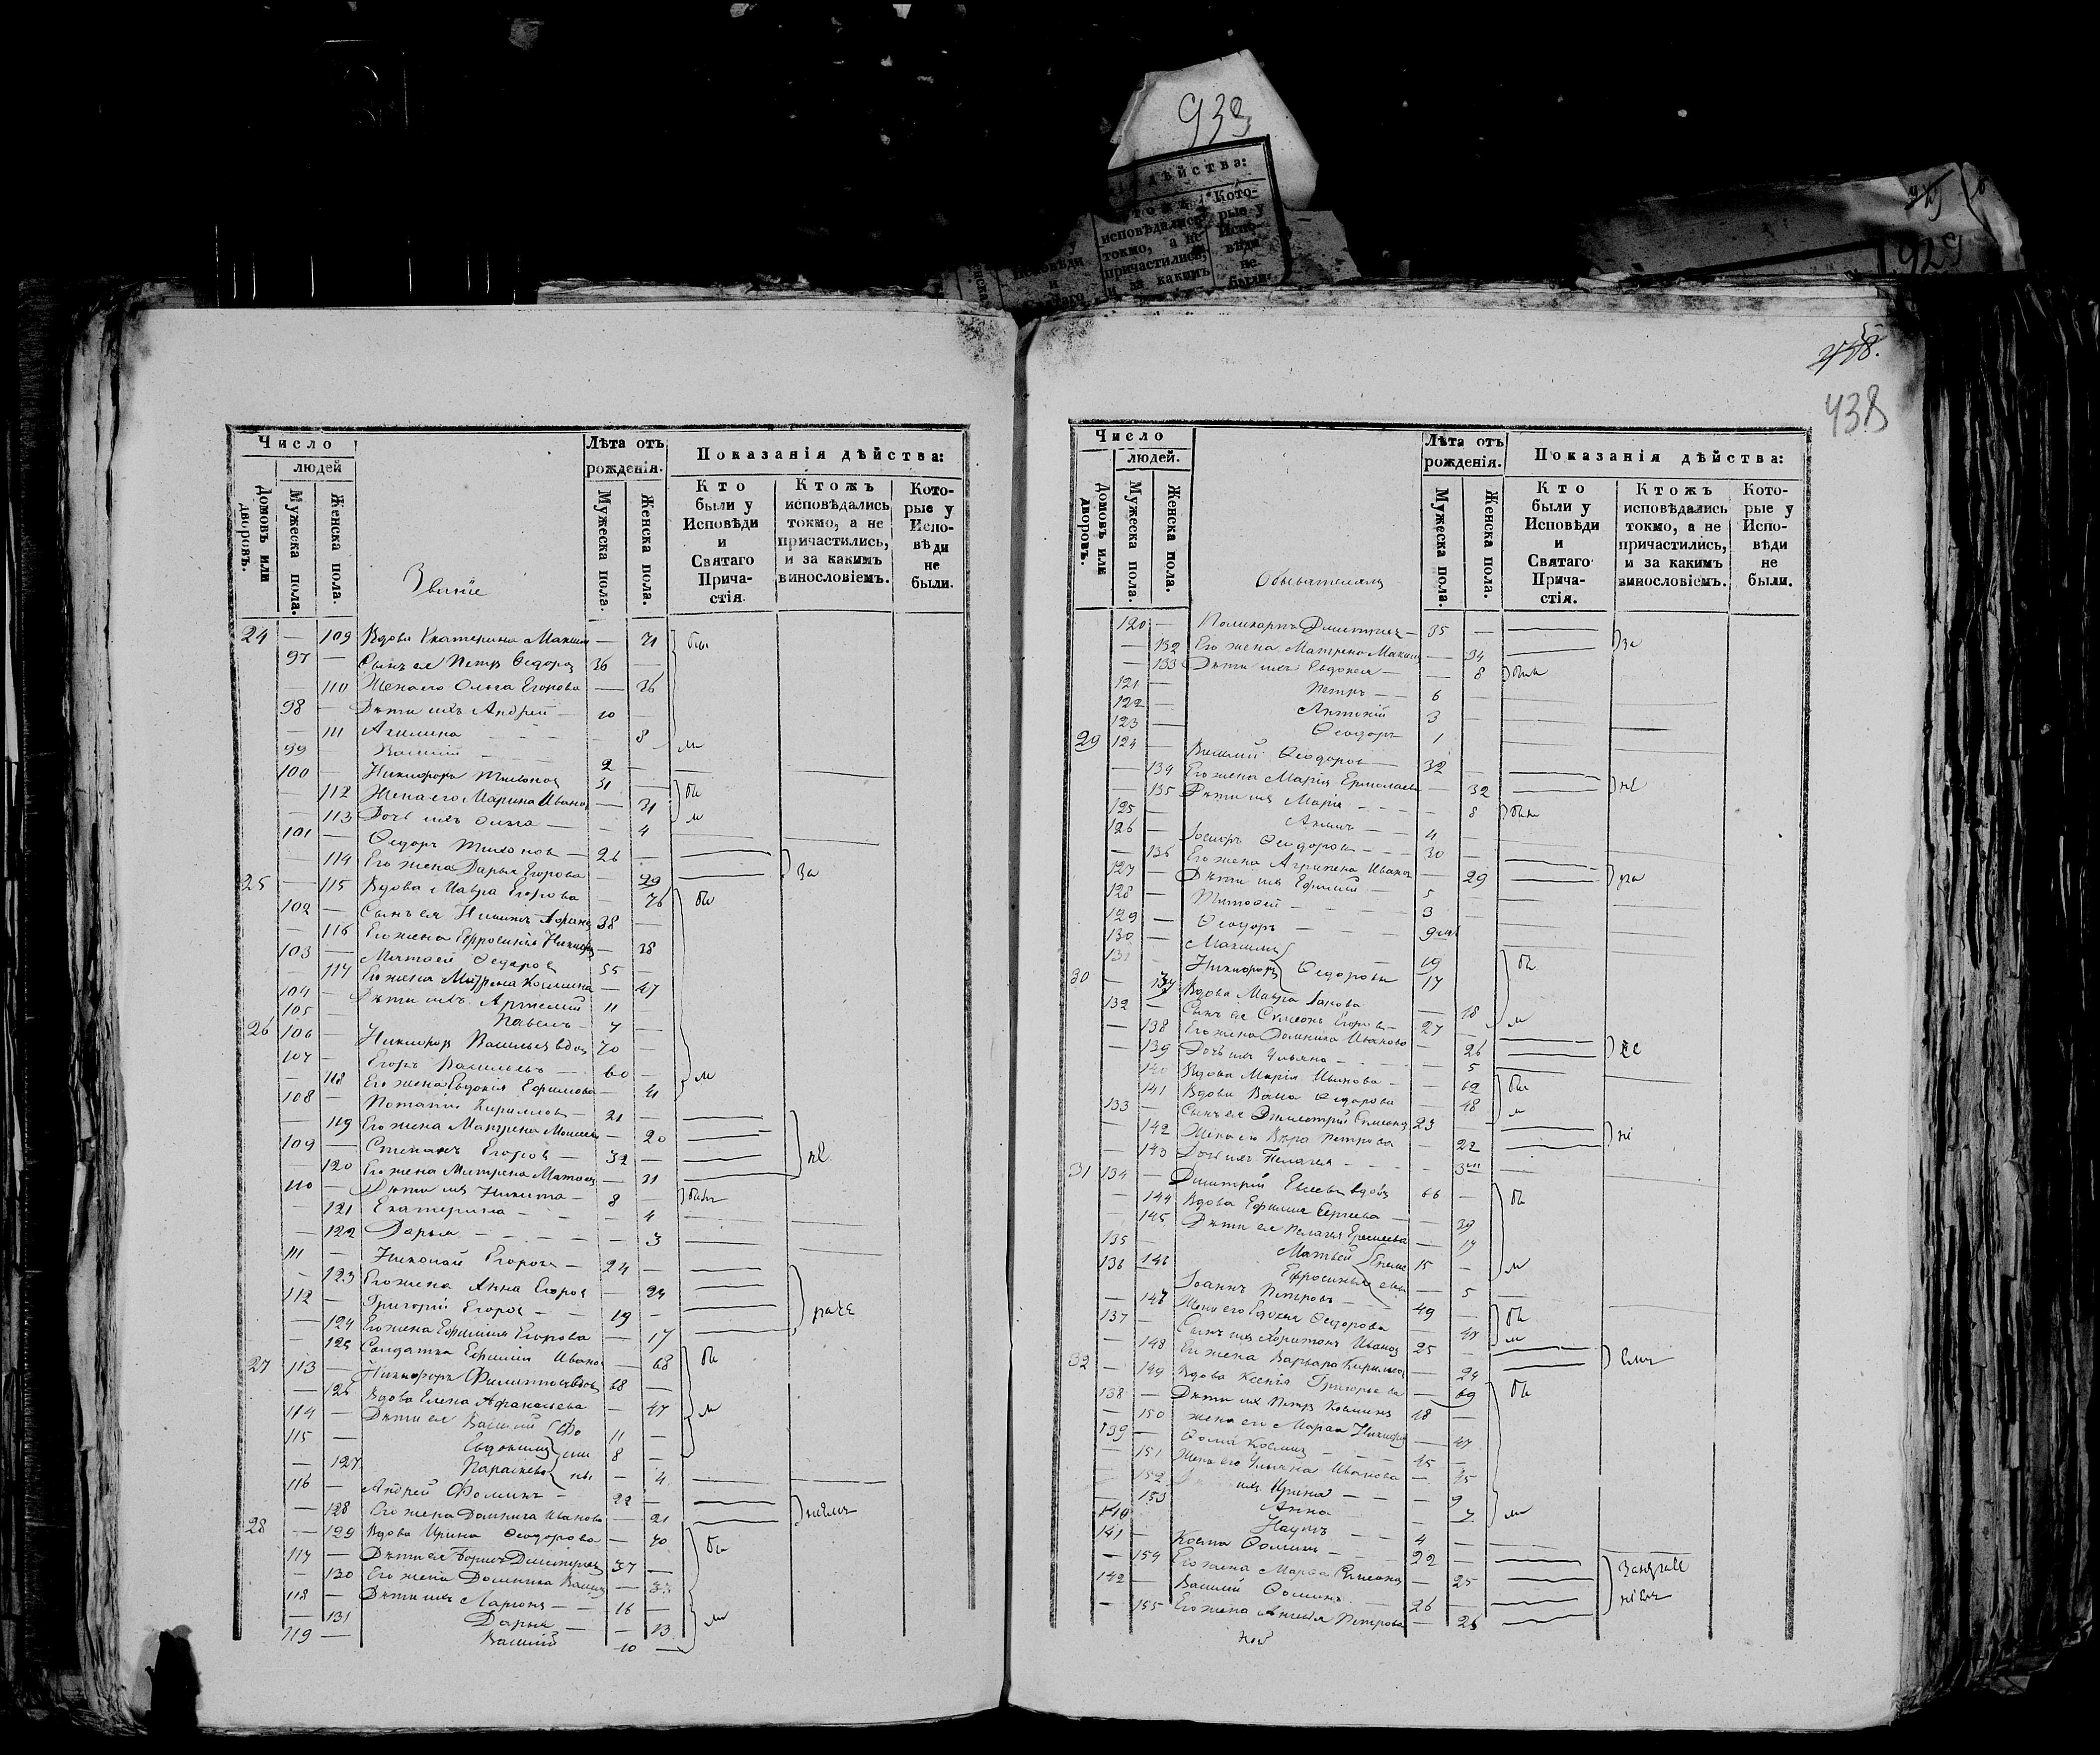 933
дѣйства:
Кото-
исповѣдались рые у
токмо, а не Испо-
причастились, вѣди
и за какимъ не
были.
929
438.
438
Число
людей
Домовъ или дворовъ.
Мужеска пола.
Женска пола.
Званіе
Лѣта отъ рожденія.
Мужеска пола.
Женска пола.
Показанія дѣйства:
Кто были у Исповѣди и Святаго Прича- стія.
Ктожъ исповѣдались токмо, а не причастились, и за какимъ винословіемъ.
Кото- рые у Испо- вѣди не были.
24 — 109 Вдова Екатерина Максим — 71 бы
97 — Сынъ ея Петръ Ѳедоров 36 —
— 110 Жена его Ольга Егорова — 36
98 — Дѣти ихъ Андрей — 10 —
— 111 Акилина — 8 ли
99 Василій — 2 —
100 — Никифоръ Тихонов 31 —
— 112 Жена его Марина Иванов — 31 бы
— 113 Дочь ихъ Ольга — 4 ли
101 — Ѳедоръ Тихонов — 26 —
— 114 Его жена Дарья Егорова — 29 За
25 — 115 Вдова Мавра Егорова — 76 бы
102 — Сынъ ея Никита Афанас 38 —
— 116 Его жена Ефросинія Никифор — 38
103 — Матѳей Ѳедоров 55 —
— 117 Его жена Матрена Космина — 47
104 — Дѣти ихъ Артемій 11 —
105 — Павелъ — 7 —
26 106 — Никифоръ Васильев вдов 70 —
107 — Егоръ Васильевъ — 60 — ли
— 118 Его жена Евдокія Ефимова — 41
108 — Потапій Кириллов — 21 —
— 119 Его жена Матрена Моисеев — 20
109 — Степанъ Егоров — 32 — не
— 120 Его жена Матрена Матѳеев — 31
110 — Дѣти ихъ Никита — 8 — были
— 121 Екатерина — 4
— 122 Дарья — 3
111 — Николай Егоров — 24 —
— 123 Его жена Анна Егоров — 24
112 — Григорій Егоров — 19 — раче
— 124 Его жена Ефимія Егорова — 17
— 125 Солдатка Ефимія Иванов — 68 бы
27 113 — Никифоръ Филиппов вдов 68 —
— 126 Вдова Елена Афанасьева — 47 ли
114 — Дѣти ея Василій Фо 11 —
115 — Евдокимъ ми 8 —
— 127 Параскева ны — 4
116 — Андрей Фоминъ — 22 —
— 128 Его жена Домника Иванова — 21
28 — 129 Вдова Ирина Ѳеодорова — 70 бы
117 — Дѣти ея Борисъ Дмитріев 37 —
— 130 Его жена Домника Васил — 37
118 — Дѣти ихъ Ларіонъ — 16 —
— 131 Дарья — 13 ли
119 — Василій 10 —
Число
людей.
Домовъ или дворовъ.
Мужеска пола.
Женска пола.
Обыватели
Лѣта отъ рожденія.
Мужеска пола.
Женска пола.
Показанія дѣйства:
Кто были у Исповѣди и Святаго Прича- стія.
Ктожъ исповѣдались токмо, а не причастились, и за какимъ винословіемъ.
Кото- рые у Испо- вѣди не были.
120 — Поликарпъ Дмитріев — 35 —
— 132 Его жена Матрена Максим — 34 за
— 133 Дѣти ихъ Евдокія — 8 были
121 — Петръ — 6 —
122 — Антоній 3 —
123 — Ѳеодоръ 1
29 124 — Василій Ѳеодоров 32 —
— 134 Его жена Марія Ермолаева — 32 не
— 135 Дѣти ихъ Марія — 8 были
125 — Акимъ — 4 —
126 — Іосифъ Ѳеодоров — 30 —
— 136 Его жена Агрипена Иванов — 29
127 — Дѣти ихъ Ефимій — 5 —
128 — Тимоѳей — 3 —
129 — Ѳеодоръ — 9 м
130 — Максимъ — 19 бы
131 — Никифоръ Ѳедоровы 17
30 — 137 Вдова Мавра Іакова — 48
132 — Сынъ ея Симеонъ Егоров — 27 ли
— 138 Его жена Домника Иванова — 26
— 139 Дочь ихъ Ульяна — 5
140 Вдова Марія Иванова — 62 бы
— 141 Вдова Васса Ѳедорова — 48 ли
133 — Сынъ ея Дмитрій Симеонов 23
— 142 Жена его Вѣра Петрова — 22
— 143 Дочь ихъ Пелагея — 3 м
31 134 — Дмитрій Евсеевъ вдовъ 66 — бы
— 144 Вдова Ефимия Сергѣева — 39
— 145 Дѣти ея Пелагея Еремеева — 17
135 — Матвѣй Ереме 15 — ли
136 146 Ефросинья евы — 5
Іоаннъ Петровъ — 49 —
— 147 Жена его Евдокія Ѳедорова — 47 бы
137 — Сынъ ихъ Харитонъ Иванов 25 — ли
— 148 Его жена Варвара Кирилов — 24
32 — 149 Вдова Ксенія Григорьева — 69 бы
138 — Дѣти ихъ Петръ Косминъ 48 —
— 150 жена его Марѳа Никифор — 47
139 — Ѳома Космин — 45 —
— 151 Жена его Ульяна Иванова — 45
— 152 ихъ Ирина — 9
— 153 Анна — 7 ли
140 Наумъ — 4 —
141 — Косма Ѳоминъ — 22 —
— 154 Его жена Марѳа Симеонов — 25
142 — Василій Ѳоминъ — 26 —
— 155 Его жена Анисія Петрова — 26